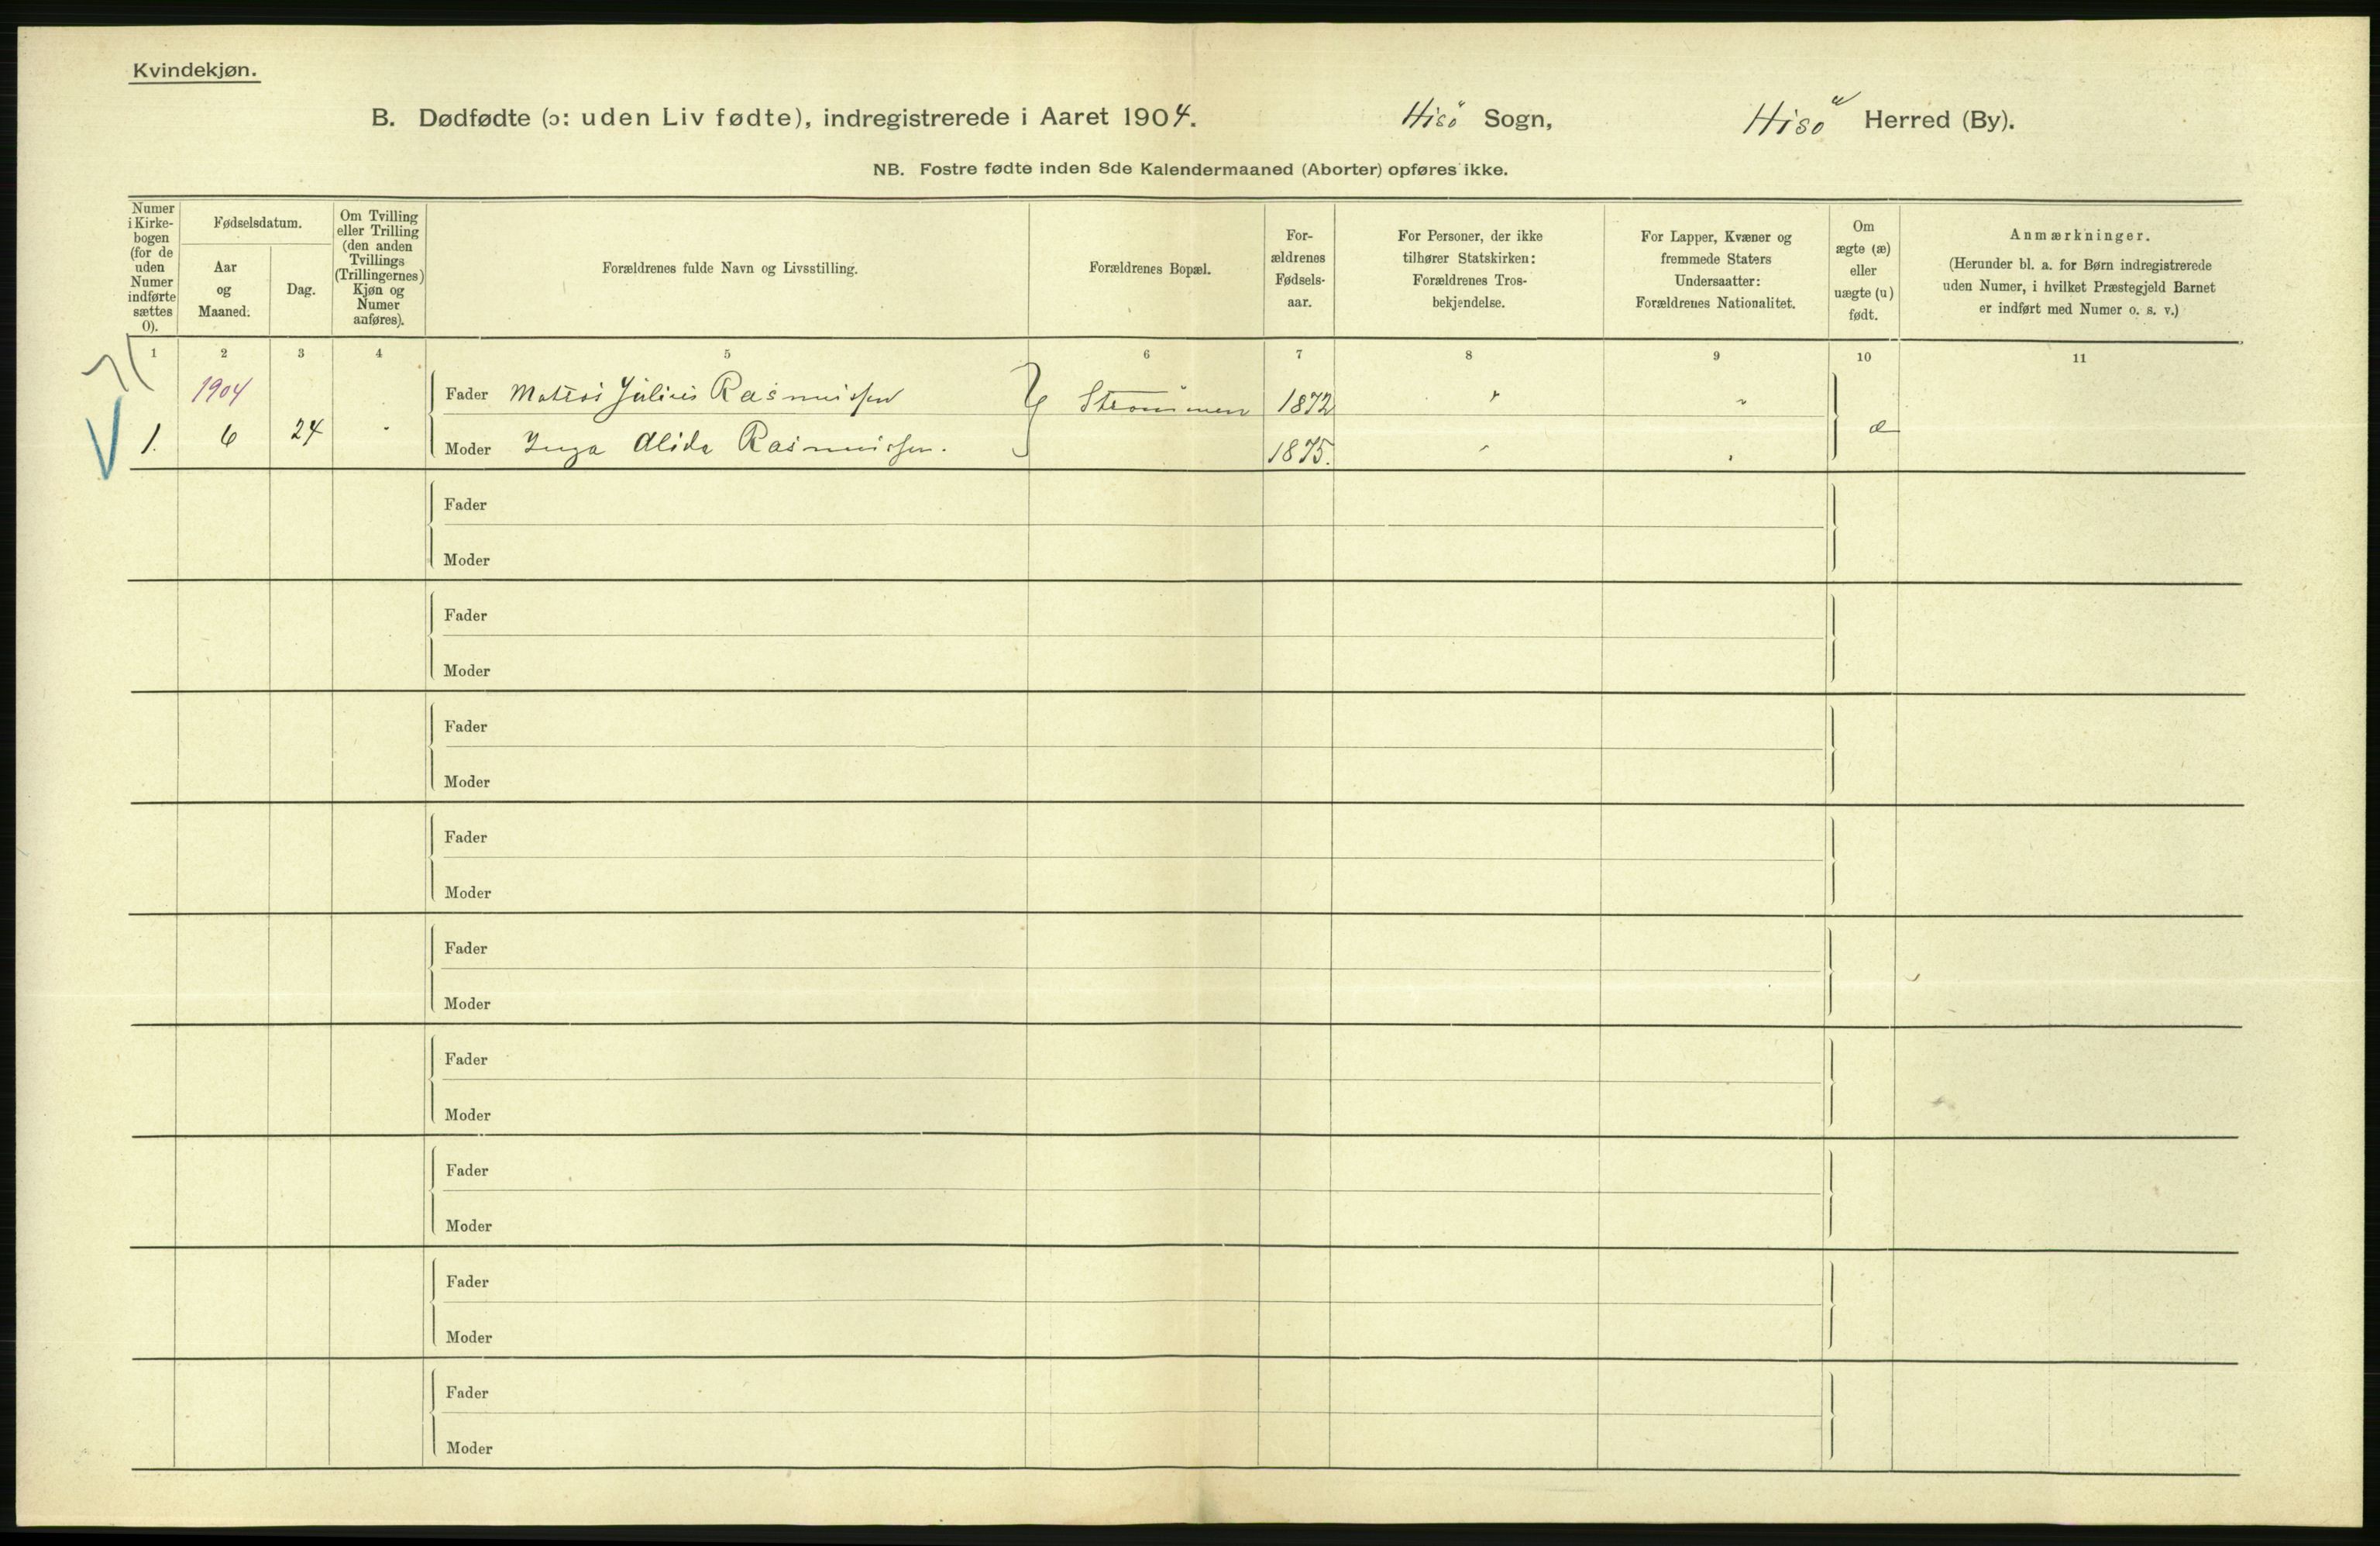 Kvindekjøn.
B. Dødfødte (ɔ: uden Liv fødte), indregistrerede i Aaret 1904. Hisö Sogn, Hisö Herred (By).
NB. Fostre fødte inden 8de Kalendermaaned (Aborter) opføres ikke.
Numer
i Kirke-
bogen
(for de
uden
Numer
indførte
sættes
0).
Fødselsdatum.
Aar
og
Maaned.
Dag.
Om Tvilling
eller Trilling
(den anden
Tvillings
(Trillingernes)
Kjøn og
Numer
anføres).
Forældrenes fulde Navn og Livsstilling.
Forældrenes Bopæl.
For-
ældrenes
Fødsels-
aar.
For Personer, der ikke
tilhører Statskirken:
Forældrenes Tros-
bekjendelse.
For Lapper, Kvæner og
fremmede Staters
Undersaatter:
Forældrenes Nationalitet.
Om
ægte (æ)
eller
uægte (u)
født.
Anmærkninger.
(Herunder bl. a. for Børn indregistrerede
uden Numer, i hvilket Præstegjeld Barnet
er indført med Numer o. s. v.)
1 2 3 4 5 6 7 8 9 10 11
1904 Fader Julius Rasmussen Strömmen 1872 " "
1. 6 24 " Moder Inga Alida Rasmussen. 1875. " " æ
Fader
Moder
Fader
Moder
Fader
Moder
Fader
Moder
Fader
Moder
Fader
Moder
Fader
Moder
Fader
Moder
Fader
Moder